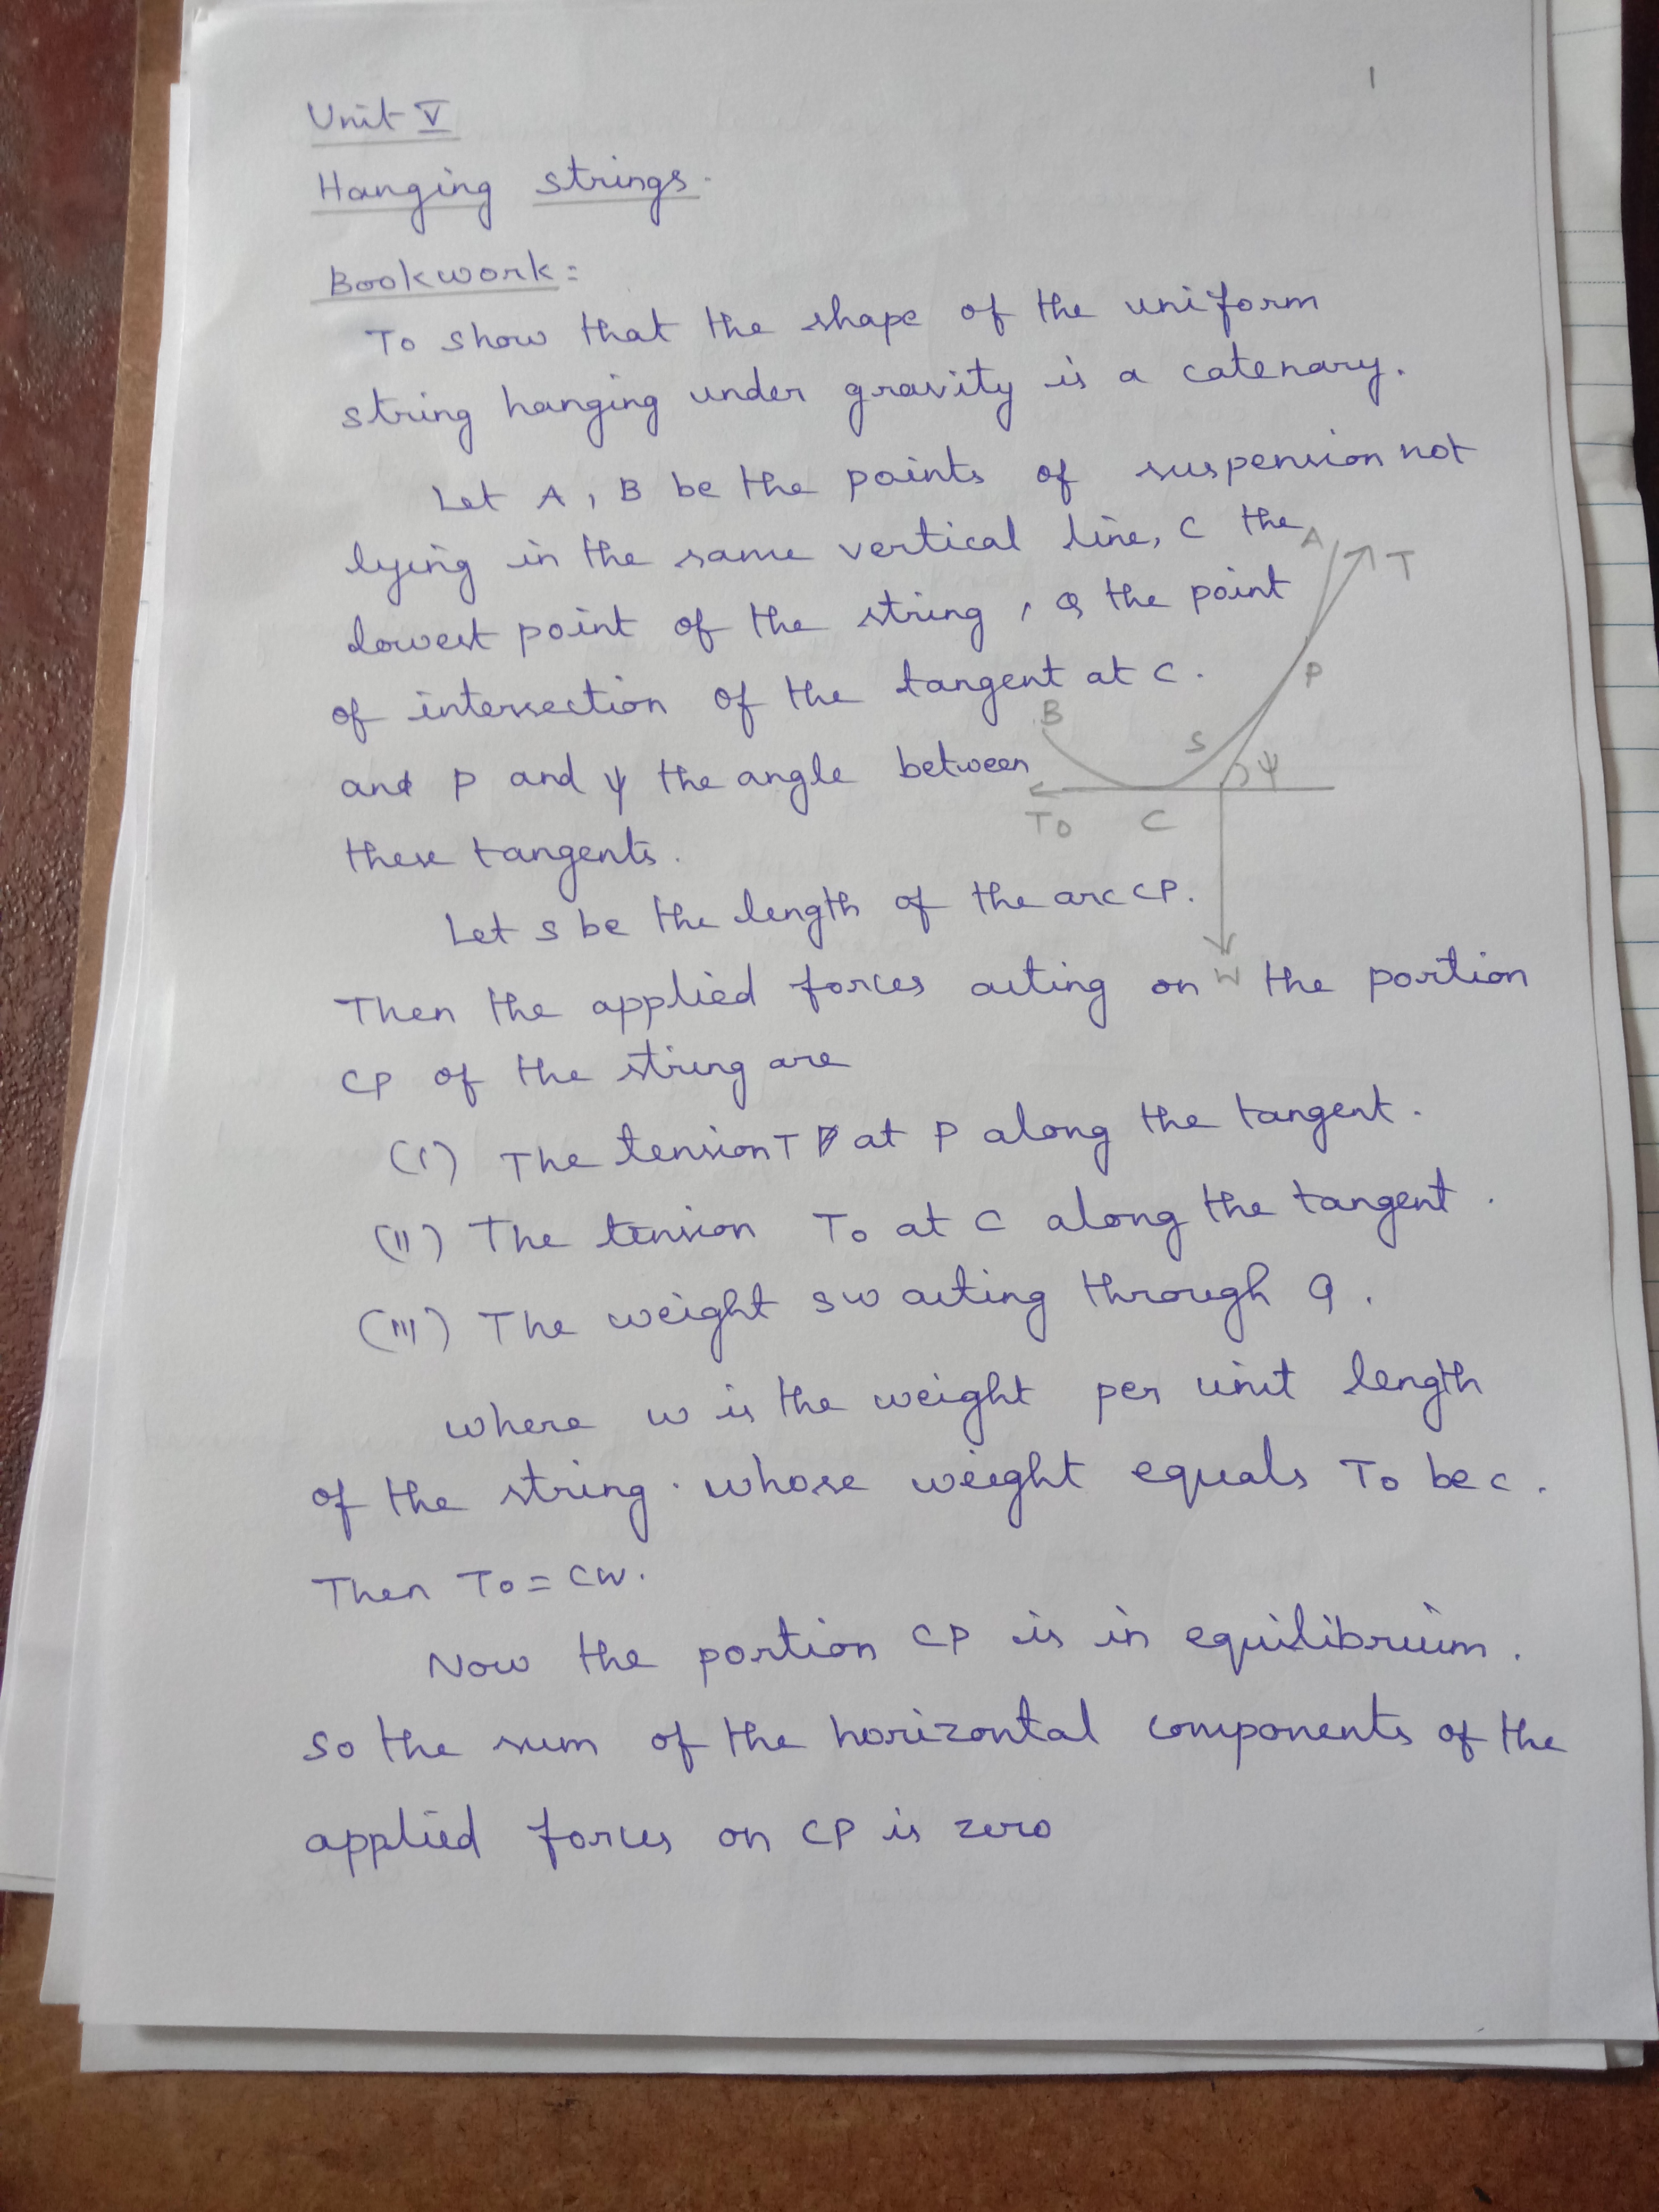 1
Unit V
Hanging strings.
Bookwork:
To show that the shape of the uniform
string hanging under gravity is a catenary.
Let A, B be the points of suspension not
lying in the same vertical line, C the
A T
lowest point of the string, Q the point
of intersection of the tangent at C.
P
B
S
and P and ψ the angle between
ψ
To C
these tangents.
Let s be the length of the arc CP.
Then the applied forces acting on the portion
W
CP of the string are
(i) The tension T at P along the tangent.
(ii) The tension To at C along the tangent.
(iii) The weight sw acting through Q.
where w is the weight per unit length
of the string. whose weight equals To be c.
Then To = cw.
Now the portion CP is in equilibrium.
So the sum of the horizontal components of the
applied forces on CP is zero